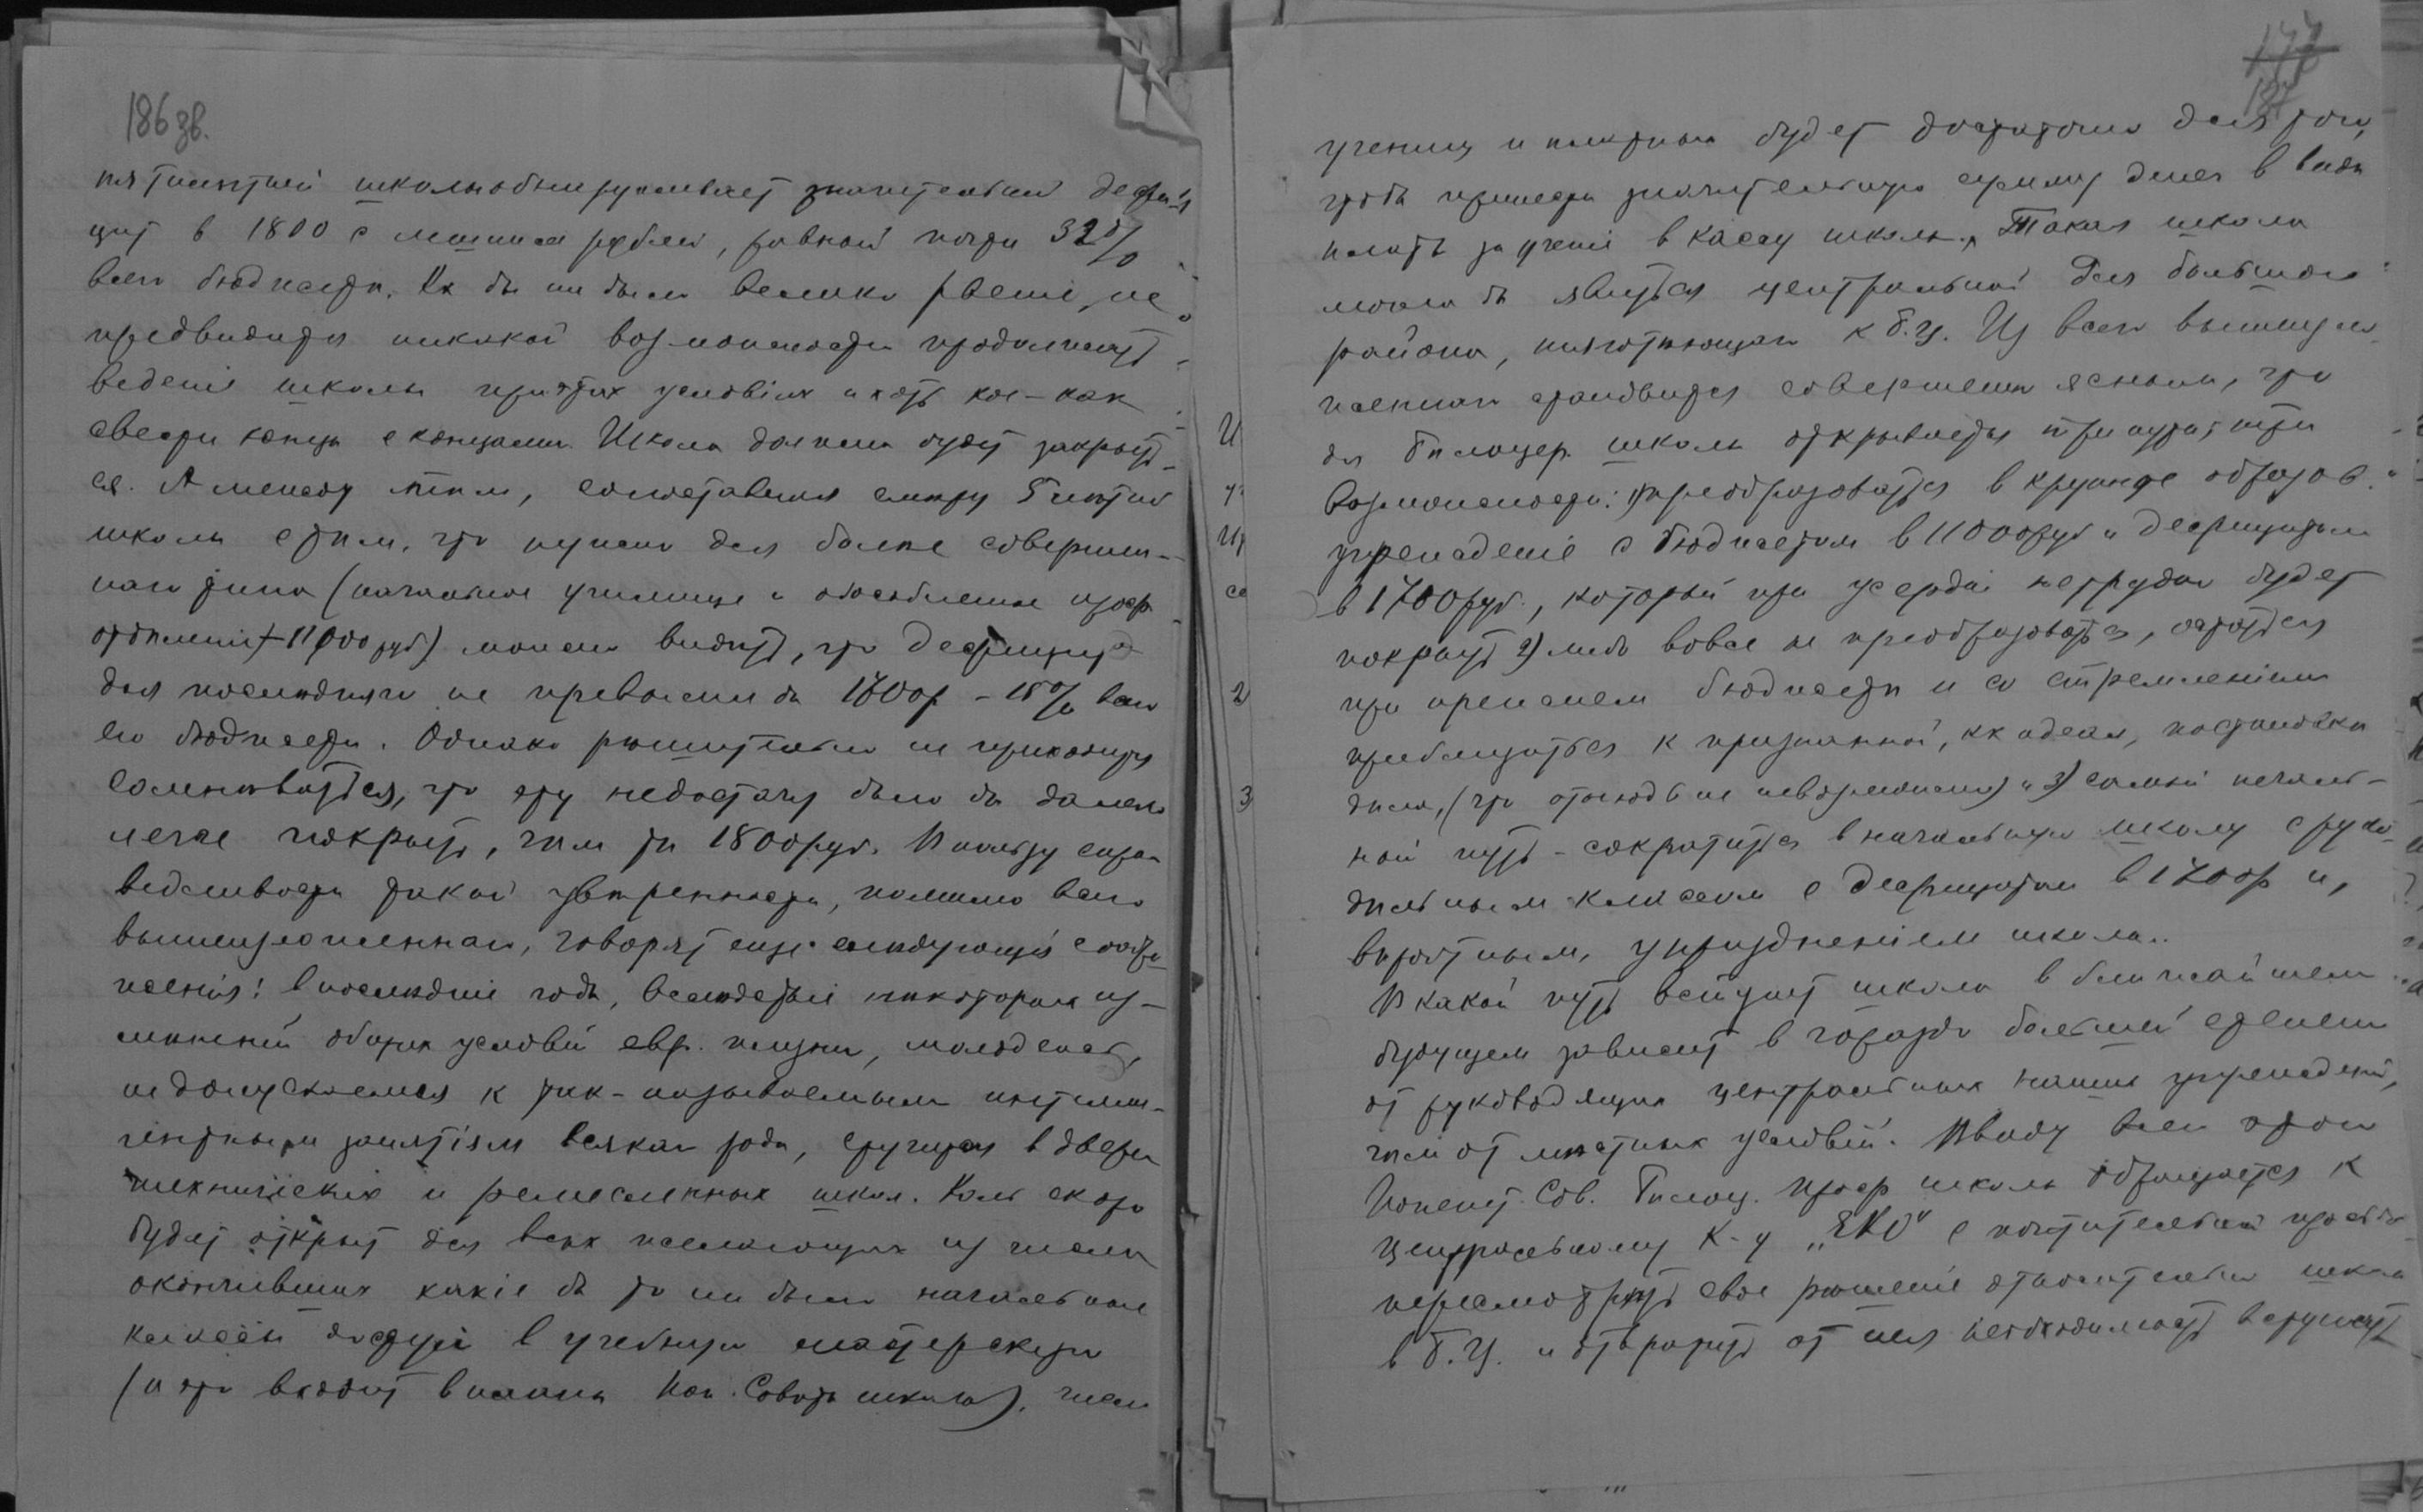 186 зв.
пятилѣтней школы обнаруживает значительный дефи-
цит в 1800 с лишним рублей, равный почти 32%
всего бюджета. Кк бы ни было велико рвеніе, не
предвидится никакой возможности продолжать
веденіе школы при этих условіях и хоть кое-как
свести концы с концами. Школа должна будет закрыть-
ся. А между тѣм, сопоставляя смѣту 5 лѣтней
школы с тѣм, что нужно для болѣе совершен-
наго типа (начальное училище и обособленные проф.
отдѣленія - 11000 руб) можем видѣть, что дефицит
для послѣдняго не превысил бы 1700 р - 15% всего
его бюджета. Однако рѣшительно не приходится
сомнѣваться, что эту недостачу было бы далеко
легче покрыть, чѣм тѣ 1800 руб. В пользу спра-
ведливости такой увѣренности, помимо всего
вышеизложеннаго, говорят еще слѣдующія сообра-
женія: в послѣдніе годы, вслѣдствіе нѣкоторых из-
мѣненій общих условій евр. жизни, молодежь,
не допускаемая к так-называемым интелли-
гентным занятіям всякаго рода, стучится в двери
технических и ремесленных школ. Коль скоро
будет открыт для всѣх желающих из числа
окончивших какіе бы то ни было начальные
классы доступ в учебную мастерскую
(и это входит в планы Поп. Совѣта школы), число
177
187
учениц и платных будет достаточно для того,
чтобы принести значительную сумму денег в видѣ
платы за ученіе в кассу школы. Такая школа
могла бы явиться центральной для большого
района, тяготѣющаго к Б.Ц. Из всего вышеизло-
женнаго становится совершенно ясным, что
для Бѣлоцер. школы открывается три пути, три
возможности: 1) преобразоваться в крупное образов.
учрежденіе с бюджетом в 11000 руб и дефицитом
в 1700 руб., который при усердіи нетрудно будет
покрыть 2) либо вовсе не преобразовываться, остаться
при прежнем бюджетѣ и со стремленіем
приблизиться к признанной, кк идеал, постановкѣ
дѣла, (что отнюдь не невозможно) и 3) самый печаль-
ный путь - сократиться в начальную школу с руко-
дѣльным классом с дефицитом в 1700 р и,
вѣроятным, упраздненіем школы.
В какой путь вступит школа в ближайшем
будущем зависит в гораздо большей степени
от руководящих центральных наших учрежденій,
чѣм от мѣстных условій. В виду всего этого
Попечит. Сов. Бѣлоц. проф школы обращается к
Центральному К-у „ЕКО“ с почтительной прось-
пересмотрѣть свое рѣшеніе относительно школы
в Б.Ц. и отвратить от нея необходимость вступить